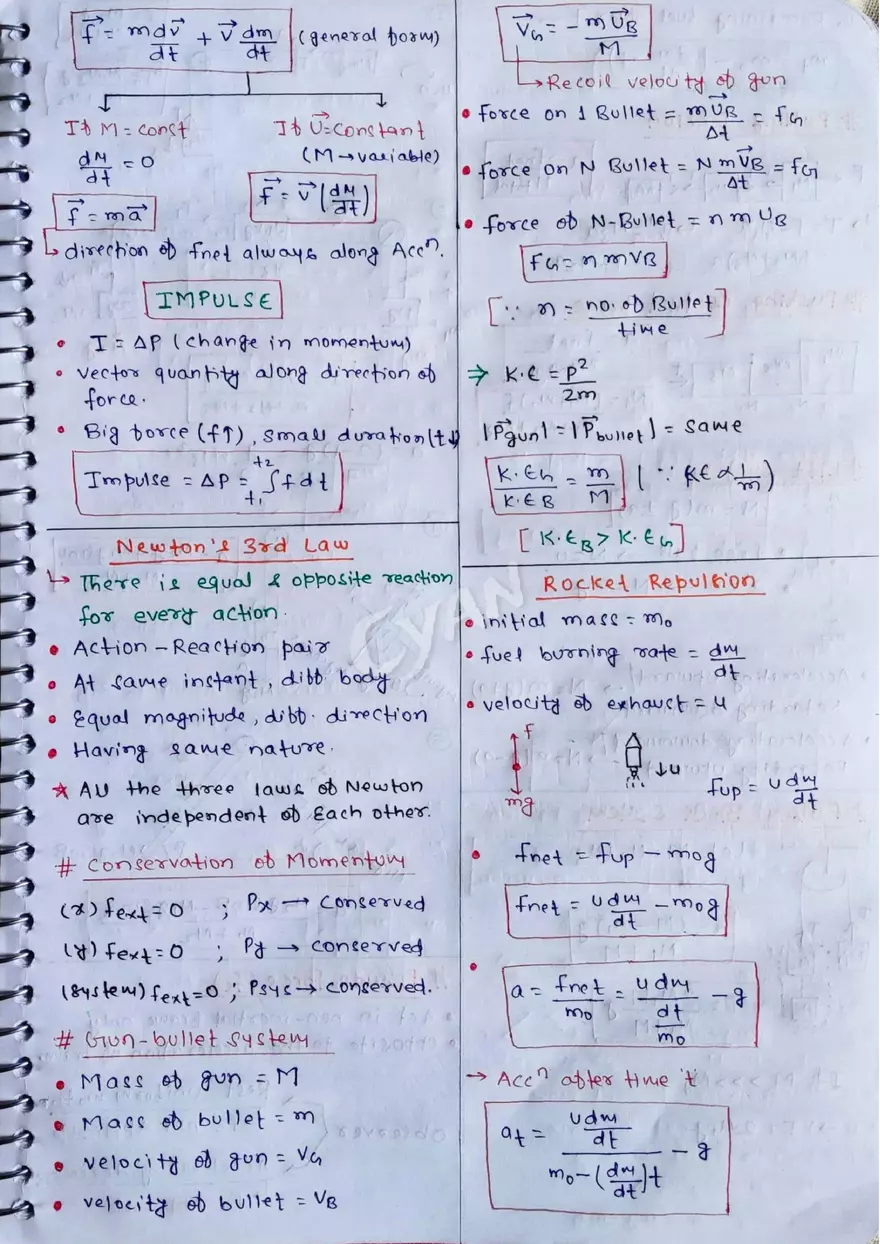 f⃗ = m dv⃗/dt + v⃗ dm/dt (general form)
If M = const
dM/dt = 0
f⃗ = ma⃗
If U⃗ = constant
(M → variable)
f⃗ = v⃗ (dM/dt)
↳ direction of fnet always along Accⁿ.
IMPULSE
• I = ΔP (change in momentum)
• vector quantity along direction of
force.
• Big force (f↑), small duration (t↓)
Impulse = ΔP = ∫_{t1}^{t2} f dt
Newton's 3rd Law
↳ There is equal & opposite reaction
for every action.
• Action - Reaction pair
• At same instant, diff body
• Equal magnitude, diff. direction
• Having same nature.
★ All the three laws of Newton
are independent of Each other.
# Conservation of Momentum
(x) fext = 0 ; Px → conserved
(y) fext = 0 ; Py → conserved
(system) fext = 0 ; Psys → conserved.
# Gun-bullet system
• Mass of gun = M
• Mass of bullet = m
• velocity of gun = VG
• velocity of bullet = VB
V⃗G = - mU⃗B/M
↳ Recoil velocity of gun
• force on 1 Bullet = mU⃗B/Δt = fG
• force on N Bullet = N mU⃗B/Δt = fG
• force of N-Bullet = n m UB
fG = n m VB
[∵ n = no. of Bullet/time]
⇒ K.E = P²/2m
|P⃗gun| = |P⃗bullet| = same
K.EG/K.EB = m/M (∵ KE ∝ 1/m)
[K.EB > K.EG]
Rocket Repulsion
• initial mass = mo
• fuel burning rate = dm/dt
• velocity of exhaust = u
f
mg
↓u
Fup = u dm/dt
• fnet = fup - mog
fnet = u dm/dt - mog
• a = fnet/mo = (u dm/dt)/mo - g
→ Accⁿ after time 't'
at = (u dm/dt)/(mo - (dm/dt)t) - g
CYAN